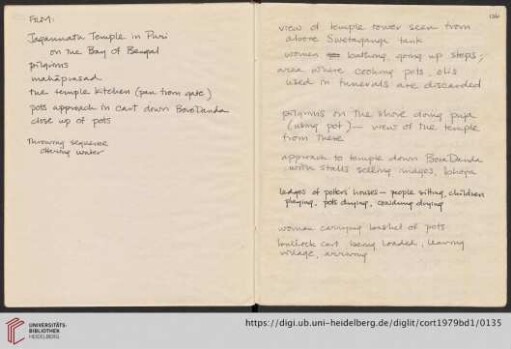 FILM:
Jagannath Temple in Puri
on the Bay of Bengal
pilgrims
mahāprasad
the temple kitchen (pan from gate)
pots approach in cart down Boro Danda
close up of pots
Throwing sequence
offering water
view of temple tower seen from
above Swetaganga tank
women bathing, going up steps;
area where cooking pots, olis
used in funerals are discarded
pilgrims on the shore doing puja
(using pot) — view of the temple
from there
approach to temple down Boro Danda
with stalls selling images, bhoga
ledges of potters houses — people sitting, children
playing, pots drying, drying
woman carrying basket of pots
bullock cart being loaded, leaving
village, arriving
UNIVERSITÄTS-
BIBLIOTHEK
HEIDELBERG
https://digi.ub.uni-heidelberg.de/diglit/cort1979bd1/0135